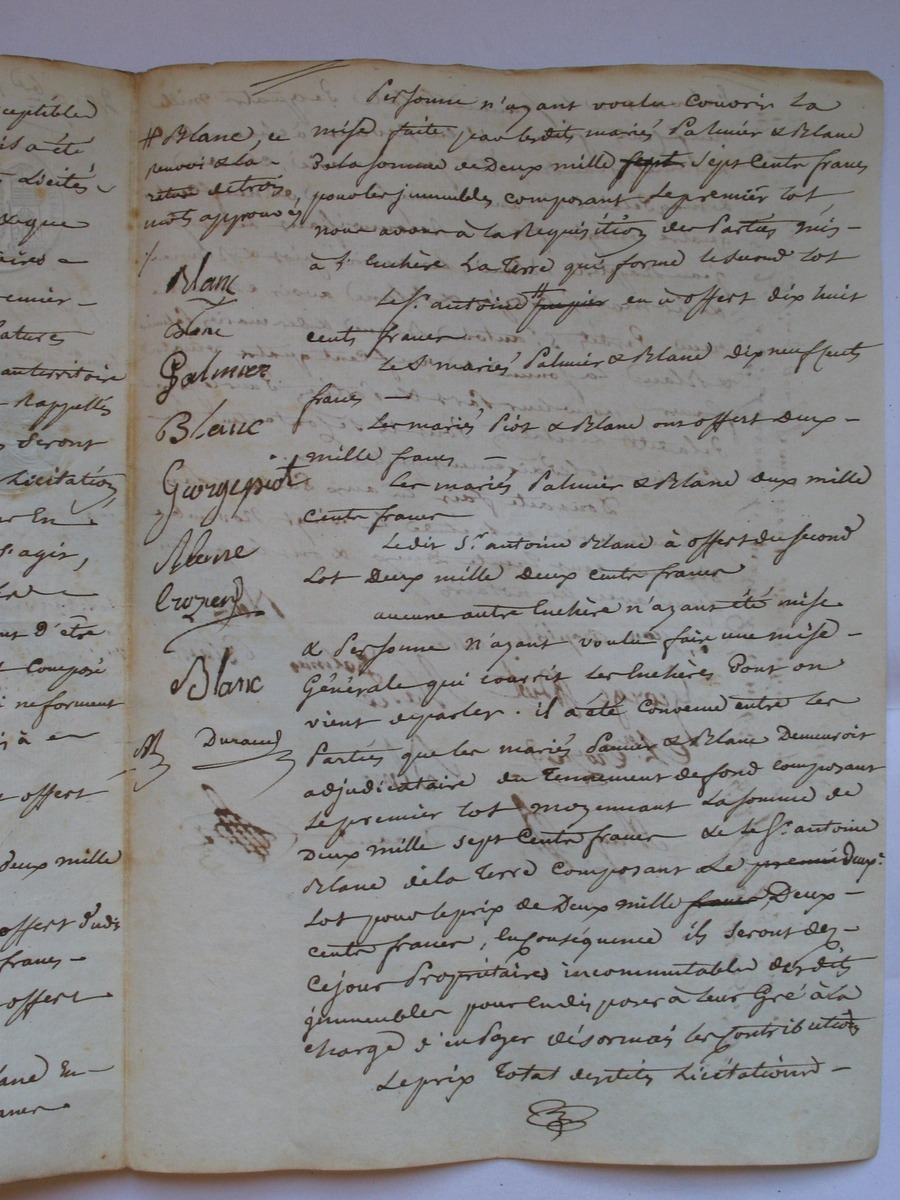 ceptible
is a été
licités
aque
aires
emier
latures
anterritoire
Rappellés
seront
licitation
er En
s'agit,
nt d'être
composé
neforment
is à
offert
Deux mille
offert
francs
offert
# Blanc, ce
renvoi & la
rature de trois
mots approuvés
Blanc
Blanc
Palmier
Blanc
George piot
Blanc
Crozen
Blanc
Durand
Personne n'ayant voulu Couvrir la
mise faite par lesdits mariés Palmier & Blanc
De la somme de Deux mille sept Sept Cents francs
pour les jmmeubles composant Le premier lot,
nous avons à la Réquisition des Parties mis
à l'Enchère La Terre qui forme le second lot
Le Sr. antoine # papier en a offert dix huit
cents francs
Le S mariés Palmier & Blanc dix neuf cents
francs
Les mariés Piot & Blanc ont offert Deux
mille francs
Les mariés Palmier & Blanc deux mille
Cents francs
Ledit Sr. antoine Blanc à offert du second
Lot Deux mille Deux cents francs
aucune autre Enchère n'ayant été mise
& Personne n'ayant voulu faire une mise
Générale qui couvrit les Enchères Dont on
vient de parler. il a été Convenu entre les
Parties que les mariés Pamier & Blanc Demeuroit
adjudicataire du Tennement de fond composant
Le premier lot moyennant La somme de
Deux mille sept Cents francs & le Sr. antoine
Blanc de la Terre composant Le premier Deux.e
Lot pour le prix de Deux mille francs Deux
cents francs, En conséquence ils seront dez
Ce jour Propriétaires incommutables desdits
jmmeubles pour En disposer à leur Gré à la
charge d'en Payer désormais les Contributions
Le prix Total desdites Licitations